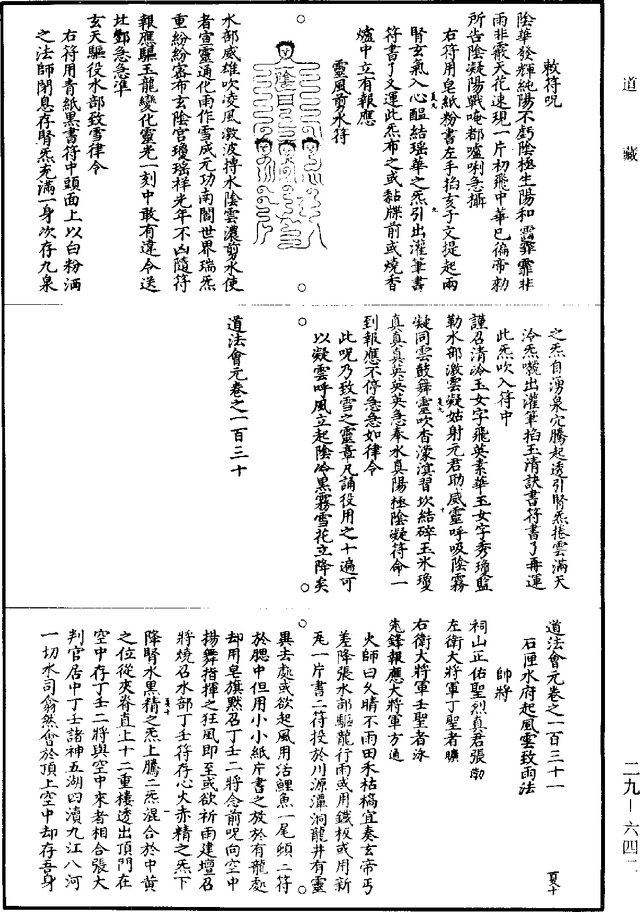 道藏
敕符呪
陰華發輝純陽不虧陰極生陽和靄霏霏非
雨非霰天花速現一片初飛中華已徧帝勑
所告陰凝陽戰唵都嚧唎急攝
右符用皂紙粉書左手掐亥子文提起兩
腎玄氣入心𥁕結瑶華之炁引出灌筆書
符書了又運此炁布之或黏牒前或燒香
爐中立有報應
靈風剪水符
水部威雄吹凌風激波搏水陰雲濃剪水使
者宣靈通化雨作雪成元功南閻世界瑞炁
重紛紛密布玄陰宫瓊瑶祥光年不凶隨符
報應驅玉龍變化靈光一刻中敢有違令送
北酆急急準
玄天驅役水部致雪律令
右符用青紙黑書符中頭面上以白粉洒
之法師閉息存腎炁充滿一身次存九泉
之炁自湧泉穴騰起透引腎炁捲雲滿天
泠炁噀出灌筆掐玉清訣書符書了再運
此炁吹入符中
謹召清泠玉女字飛英素華玉女字秀瓊監
勒水部激雲凝姑射元君助威靈呼吸陰霧
凝同雲鼓舞靈吹香濛溟習坎結碎玉氷瓊
真真真英英英急奉水真陽極陰凝符命一
到報應不停急急如律令
此呪乃致雪之靈章凡誦役用之十遍可
以凝雲呼風立起陰冷黑霧雪花立降矣
道法會元卷之一百三十
道法會元卷之一百三十一
石匣水府起風雲致雨法
帥將
祠山正佑聖烈真君張渤
左衛大將軍丁聖者曠
右衛大將軍壬聖者泳
先鋒報應大將軍方通
火師曰久晴不雨田禾枯槁宜奏玄帝丐
差降張水部驅龍行雨或用鐵板或用新
瓦一片書二符投於川源灘洞龍井有靈
異去處或欲起風用活鯉魚一尾頻二符
於腮中但用小小紙片書之放於有龍處
却用皂旗默召丁壬二將念前呪向空中
揚舞指揮之狂風即至或欲祈雨建壇召
將燒召水部丁壬符存心火赤精之炁下
降腎水黑精之炁上騰二炁混合於中黄
之位從夾脊直上十二重樓透出頂門在
空中存丁壬二將與空中來者相合張大
判官居中丁壬諸神五湖四瀆九江八河
一切水司翁然會於頂上空中却存吾身
二九－六四二